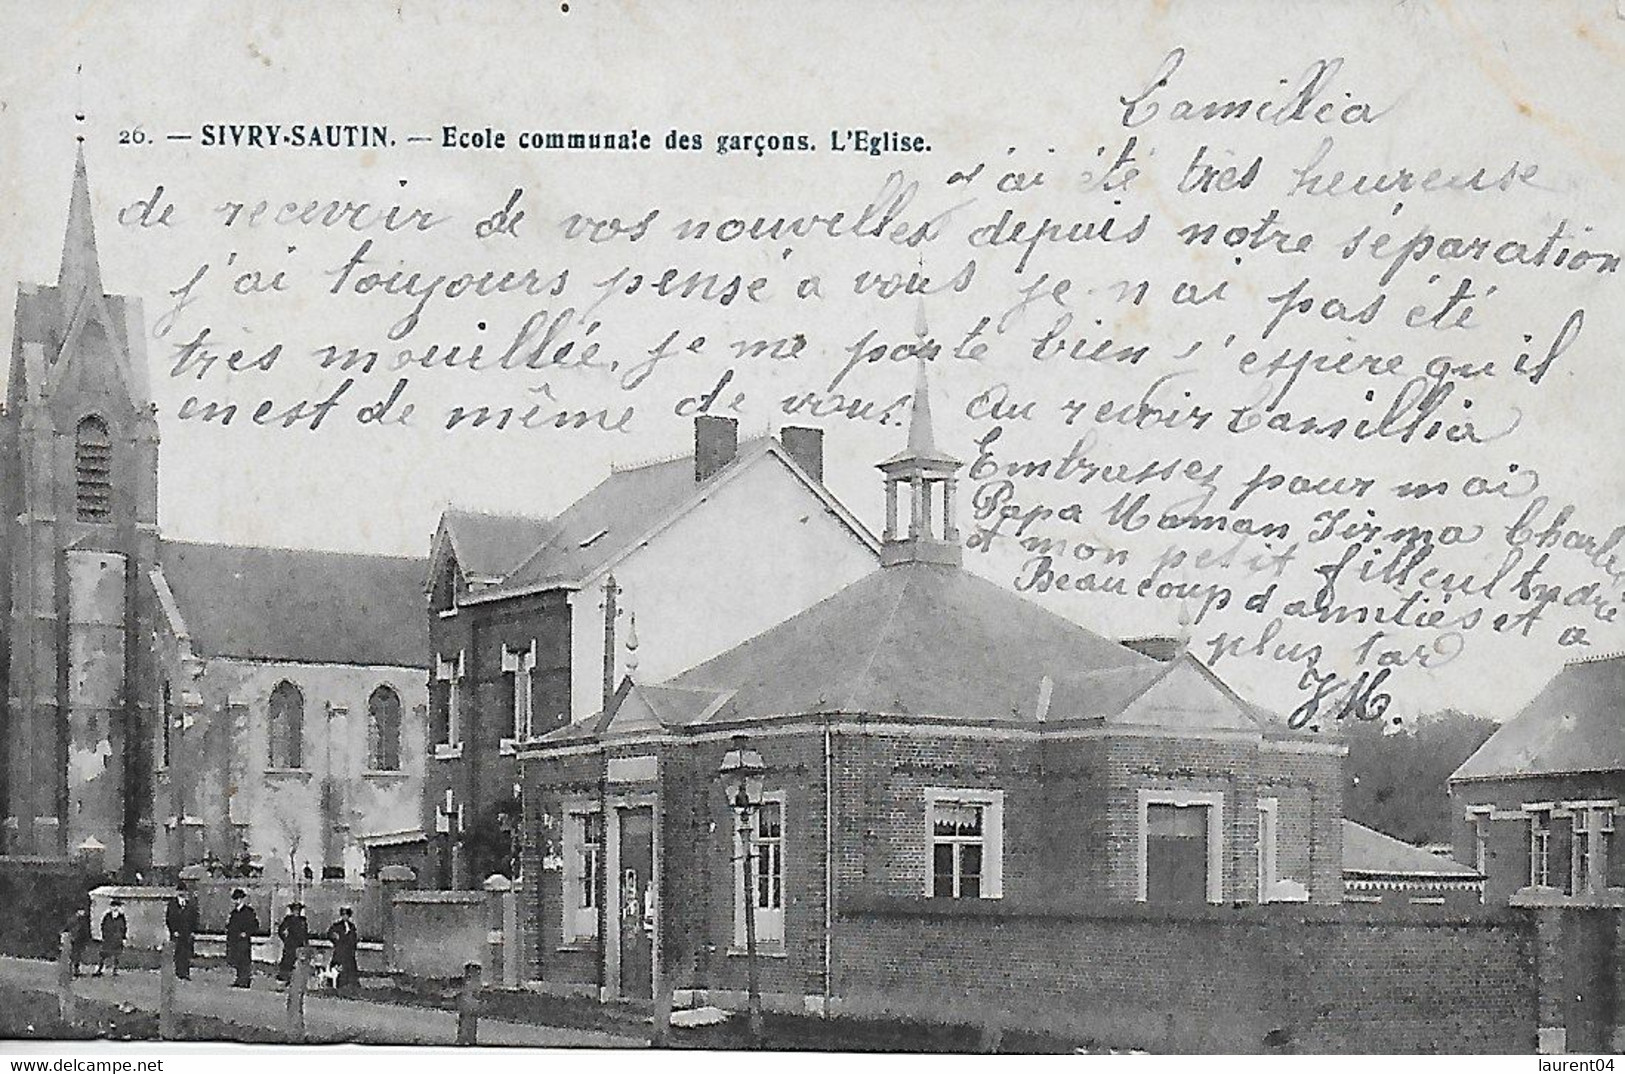 26. — SIVRY-SAUTIN. — Ecole communale des garçons. L'Eglise.
Camillia
J'ai été très heureuse
de recevoir de vos nouvelles depuis notre séparation
j'ai toujours pensé a vous je n'ai pas été
très mouillée, je me porte bien j'espère qu'il
en est de même de vous. Au revoir Camillia
Embrasses pour moi
Papa Maman Irma Charles
et mon petit filleul André
Beaucoup d'amitiés et a
plus tard
J M.
laurent04